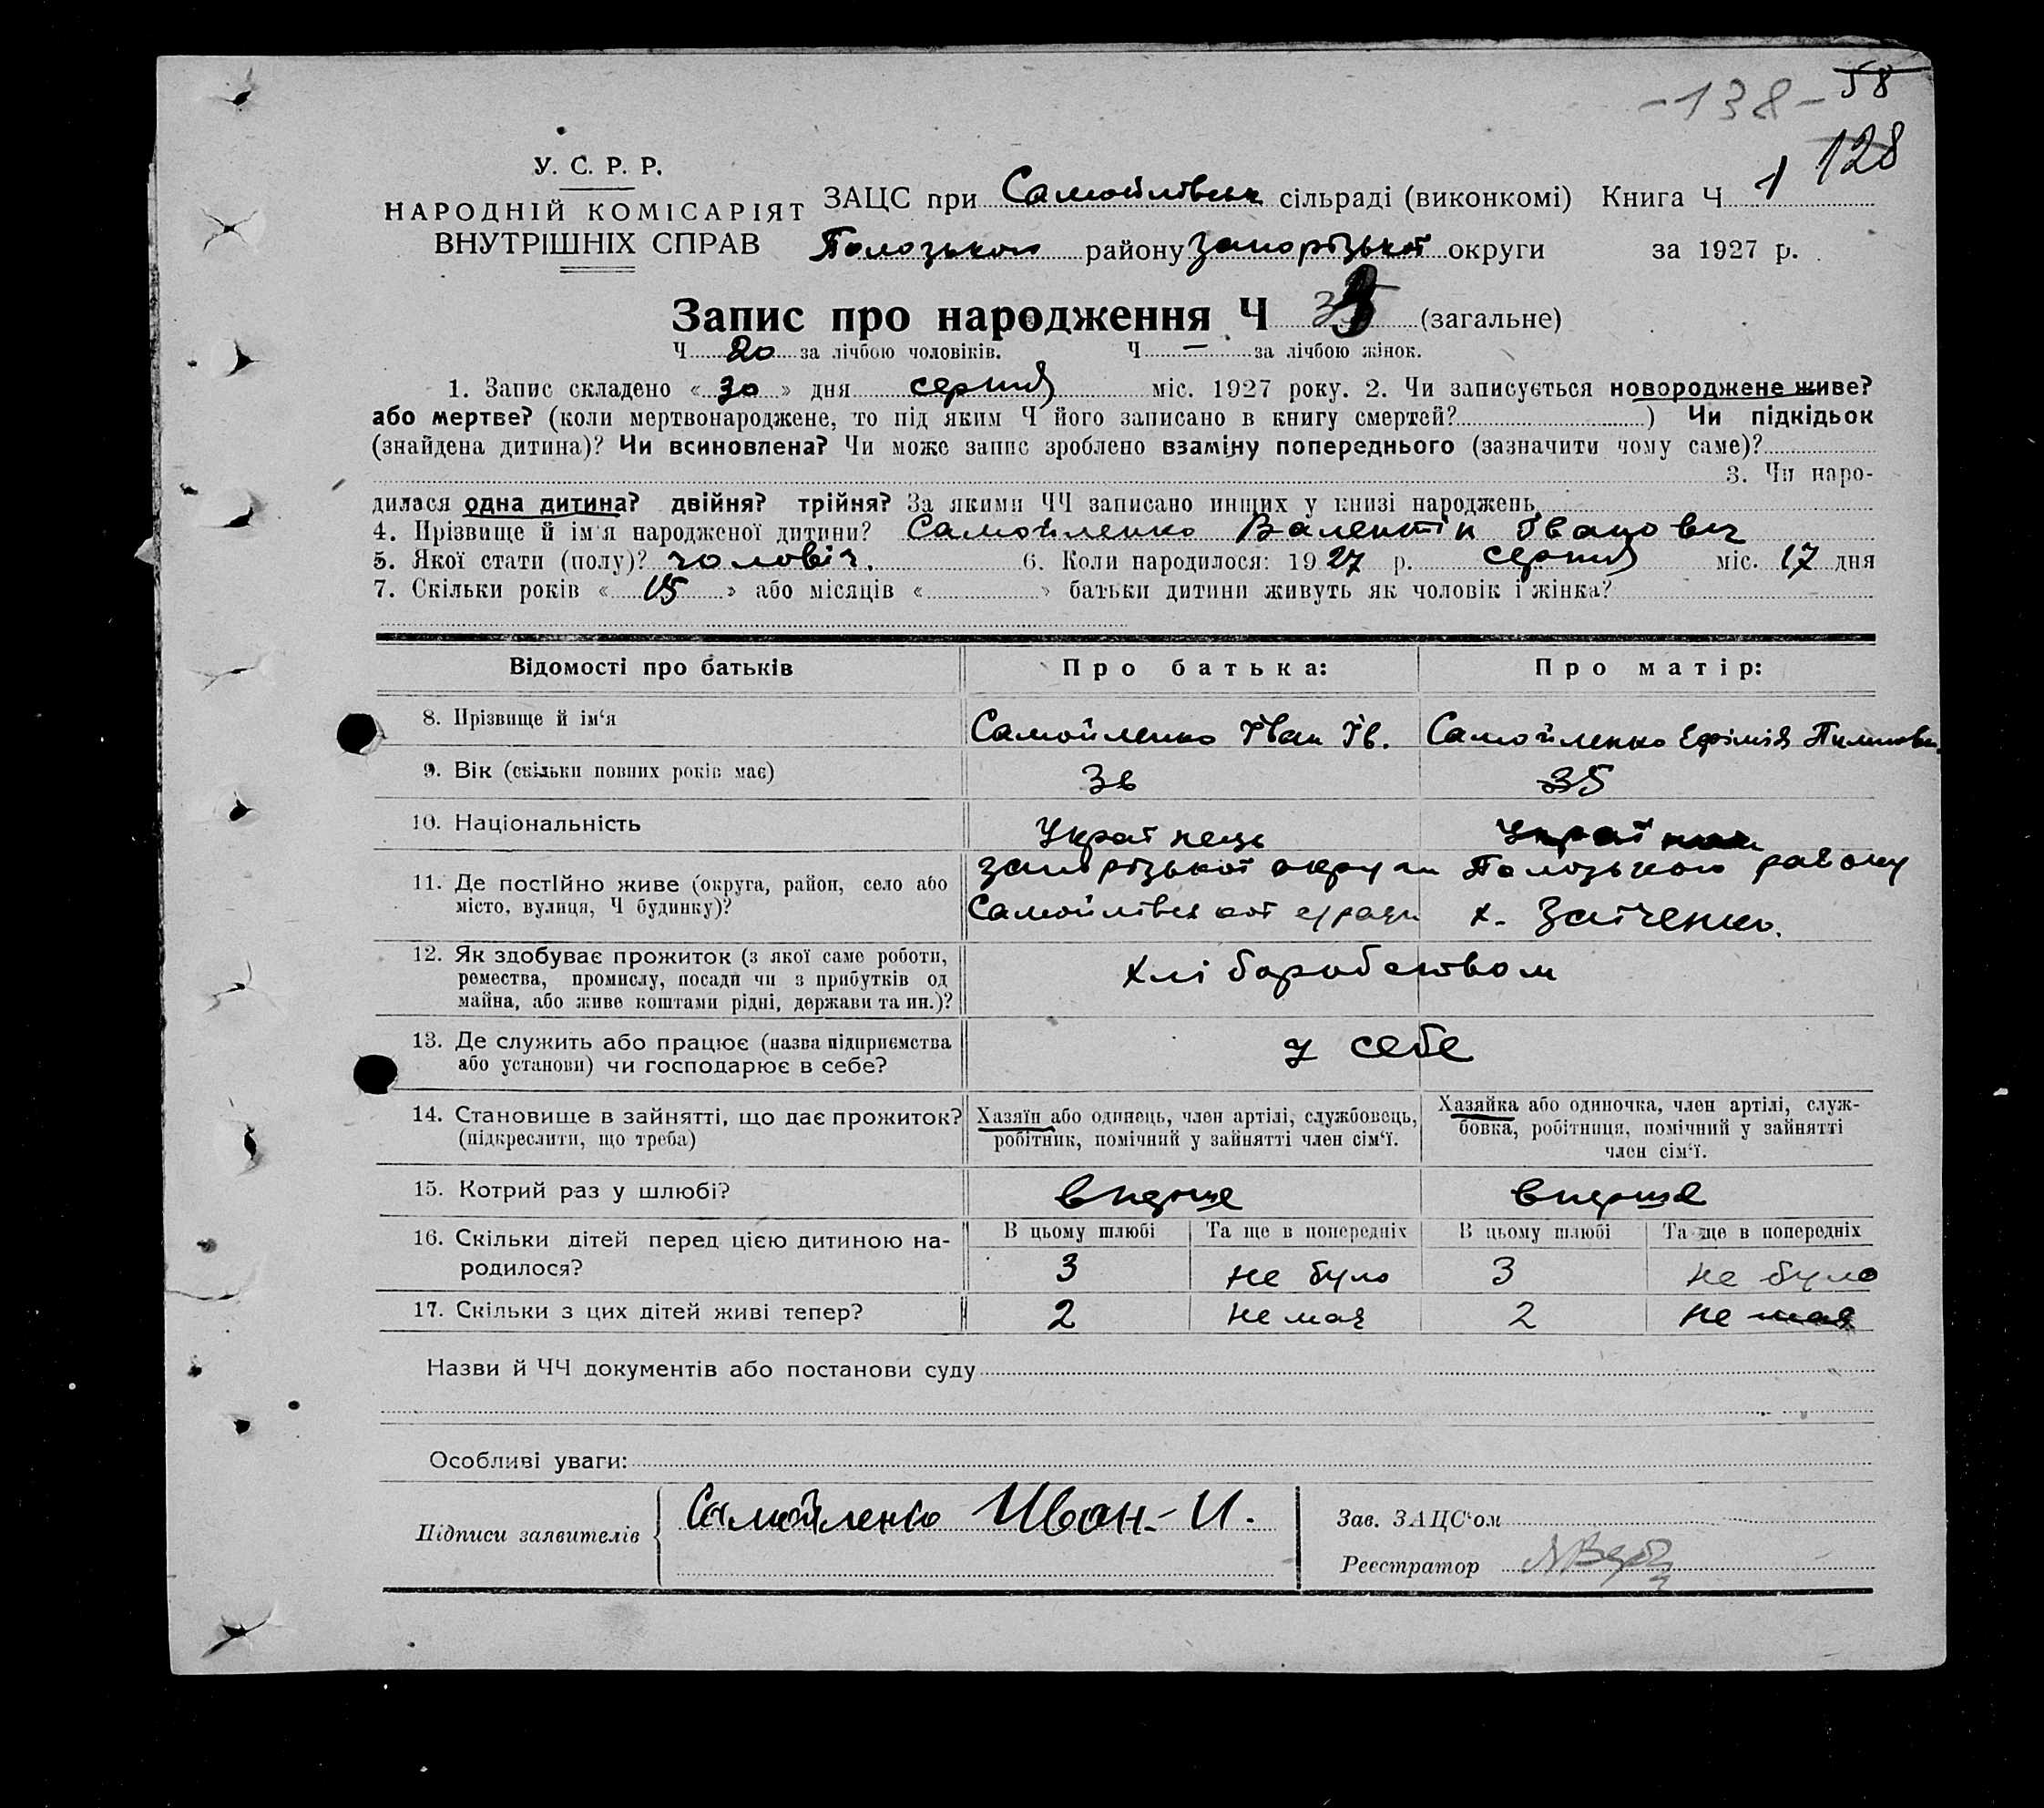 -138- 58
128
У. С. Р. Р.
НАРОДНІЙ КОМІСАРІЯТ
ВНУТРІШНІХ СПРАВ
ЗАЦС при Самойлівськ сільраді (виконкомі) Книга Ч 1
Пологського району Запорізької округи за 1927 р.
Запис про народження Ч (загальне)
Ч 20 за лічбою чоловіків. Ч — за лічбою жінок.
1. Запис складено « 30 » дня серпня міс. 1927 року. 2. Чи записується новороджене живе?
або мертве? (коли мертвонароджене, то під яким Ч його записано в книгу смертей? ) Чи підкідьок
(знайдена дитина)? Чи всиновлена? Чи може запис зроблено взаміну попереднього (зазначити чому саме)?
3. Чи наро-
дилася одна дитина? двійня? трійня? За якими ЧЧ записано инших у книзі народжень
4. Прізвище й ім'я народженої дитини? Самойленко Валентін Іванович
5. Якої стати (полу)? чоловіч. 6. Коли народилося: 1927 р. серпня міс. 17 дня
7. Скільки років « 15 » або місяців « » батьки дитини живуть як чоловік і жінка?
Відомості про батьків Про батька: Про матір:
8. Прізвище й ім'я Самойленко Іван Ів. Самойленко Ефімія
9. Вік (скільки повних років має) 36 35
10. Національність Українець Українка
11. Де постійно живе (округа, район, село або
місто, вулиця, Ч будинку)?
Запорізької округи Пологського району
Самойлівської с/ради х. Заіченко.
12. Як здобуває прожиток (з якої саме роботи,
ремества, промислу, посади чи з прибутків од
майна, або живе коштами рідні, держави та ин.)?
хліборобством
13. Де служить або працює (назва підприємства
або установи) чи господарює в себе?
у себе
14. Становище в зайнятті, що дає прожиток?
(підкреслити, що треба)
Хазяїн або одинець, член артілі, службовець,
робітник, помічний у зайнятті член сім'ї.
Хазяйка або одиночка, член артілі, служ-
бовка, робітниця, помічний у зайнятті
член сім'ї.
15. Котрий раз у шлюбі? вперше вперше
16. Скільки дітей перед цією дитиною на-
родилося?
В цьому шлюбі Та ще в попередніх В цьому шлюбі Та ще в попередніх
3 не було 3 не було
17. Скільки з цих дітей живі тепер? 2 немає 2 немає
Назви й ЧЧ документів або постанови суду
Особливі уваги:
Підписи заявителів Самойленко Иван-И.
Зав. ЗАЦС'ом
Реєстратор